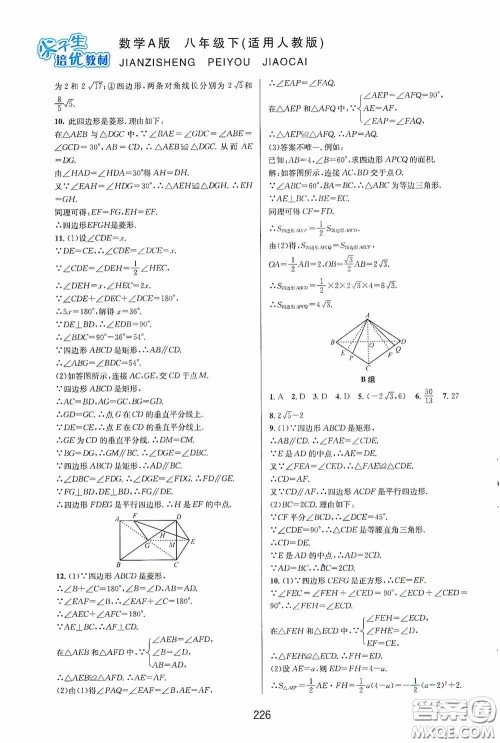 尖子生
培优教材
数学A版 八年级下(适用人教版)
JIANZISHENG PEIYOU JIAOCAI
为2和2√17;④四边形,两条对角线长分别为2√5和
8/5√5.
10. 此四边形是菱形.理由如下:
在△AEB与△DGC中,∵∠BAE=∠GDC,∠ABE=
∠GCD=30°,AB=CD,∴△AEB≌△DGC.从而AE
=DG.
由∠HAD=∠HDA=30°得AH=DH.
又∵∠EAH=∠HDG=30°,∴△AEH≌△DGH.∴EH
=GH.
同理可得:EF=GF,EH=EF.
∴四边形EFGH是菱形.
11. (1)设∠CDE=x.
∵DE=CE,∴∠CDE=∠DCE=x.
∵∠CDE=∠DEH=1/2∠HEC,
∴∠DEH=x,∠HEC=2x.
∵∠CDE+∠DEC+∠DCE=180°,
∴5x=180°,解得x=36°.
∵DE⊥BD,∴∠BDE=90°.
∴∠BDC=∠BDE-∠CDE=54°.
∵四边形ABCD是矩形,∴AB∥CD.
(2)如答图所示,连接AC,GE,GC,AC交CD于点M.
∵四边形ABCD是矩形,
∴AC=BD,AG=GC,BG=GD.
∴GC=DG,∴点G在CD的垂直平分线上.
∵DE=CE,∴点E在CD的垂直平分线上.
∴GE为CD的中垂线,∴DM=CM.
∵四边形ABCD是矩形,∴AD∥BC.
∴∠DBC=∠FDG.∵∠DGE=∠DBC.
∴∠FDG=∠DGE.∴DF∥GE.
∵DE⊥BD,FG⊥BD,∴FG∥DE.
∴四边形FDEG是平行四边形.∴H是EF的中点.
A F D
G H M E
B C
12. (1)∵四边形ABCD是菱形,
∴∠B+∠C=180°,∠B=∠D,AB=AD.
∵∠EAF=∠B,
∴∠EAF+∠C=180°.
∴∠AEC+∠AFC=180°.
∵AE⊥BC,∴AF⊥CD.
在△AEB和△AFD中,∵{∠AEB=∠AFD,
∠B=∠D,
AB=AD,
∴△AEB≌△AFD.∴AE=AF.
(2)由(1)得∠PAQ=∠EAF=∠B,AE=AF.
∴∠EAP=∠FAQ.
在△AEP和△AFQ中,∵{∠AEP=∠AFQ=90°,
AE=AF,
∠EAP=∠FAQ,
∴△AEP≌△AFQ.∴AP=AQ.
(3)答案不唯一.例如:
已知:AB=4,∠B=60°,求四边形APCQ的面积.
解:如答图所示,连接AC,BD交于点O.
∵∠ABC=60°,BA=BC,∴△ABC为等边三角形.
∵AE⊥BC,∴BE=EC.
同理可得CF=FD.
∴S四边形AECF=1/2S四边形ABCD.
由(2)得,S四边形APCQ=S四边形AECF.
OA=1/2AB=2,OB=√3/2AB=2√3.
∴S四边形ABCD=1/2×2×2√3×4=8√3.
∴S四边形APCQ=4√3.
A
B O D
E P C F Q
B组
1. A 2. D 3. D 4. D 5. (-2√3,6) 6. 30/13 7. 27
8. 2√5-2
9. (1)∵四边形ABCD是矩形,
∴AB∥CD.∴∠FAE=∠CDE.
∵E是AD的中点,∴AE=DE.
又∵∠FEA=∠CED,∴△FAE≌△CDE.
∴CD=FA.
又∵CD∥AF,∴四边形ACDF是平行四边形.
(2)BC=2CD.理由如下:
∵CF平分∠BCD,∴∠DCE=45°.
∵∠CDE=90°,∴△CDE是等腰直角三角形.
∴CD=DE.
∵E是AD的中点,∴AD=2CD.
∵AD=BC,∴BC=2CD.
10. (1)∵四边形CEFG是正方形,∴CE=EF.
∵∠FEC=∠FEH+∠CED=90°,∠DCE+∠CED
=90°,∴∠FEH=∠ECD.
在△FEH和△ECD中,∵{∠FEH=∠ECD,
∠FHE=∠D,
EF=CE,
∴△FEH≌△ECD.∴FH=ED.
(2)设AE=a,则ED=FH=4-a.
∴S△AEF=1/2AE·FH=1/2a(4-a)=-1/2(a-2)²+2.
226